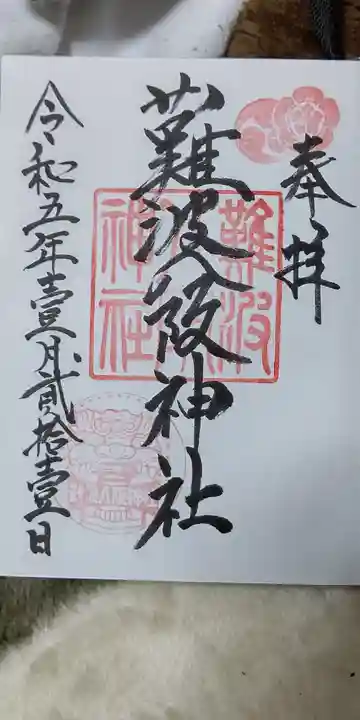 奉拝
難波八阪神社
難波
神社
令和五年壹月貳拾壹日